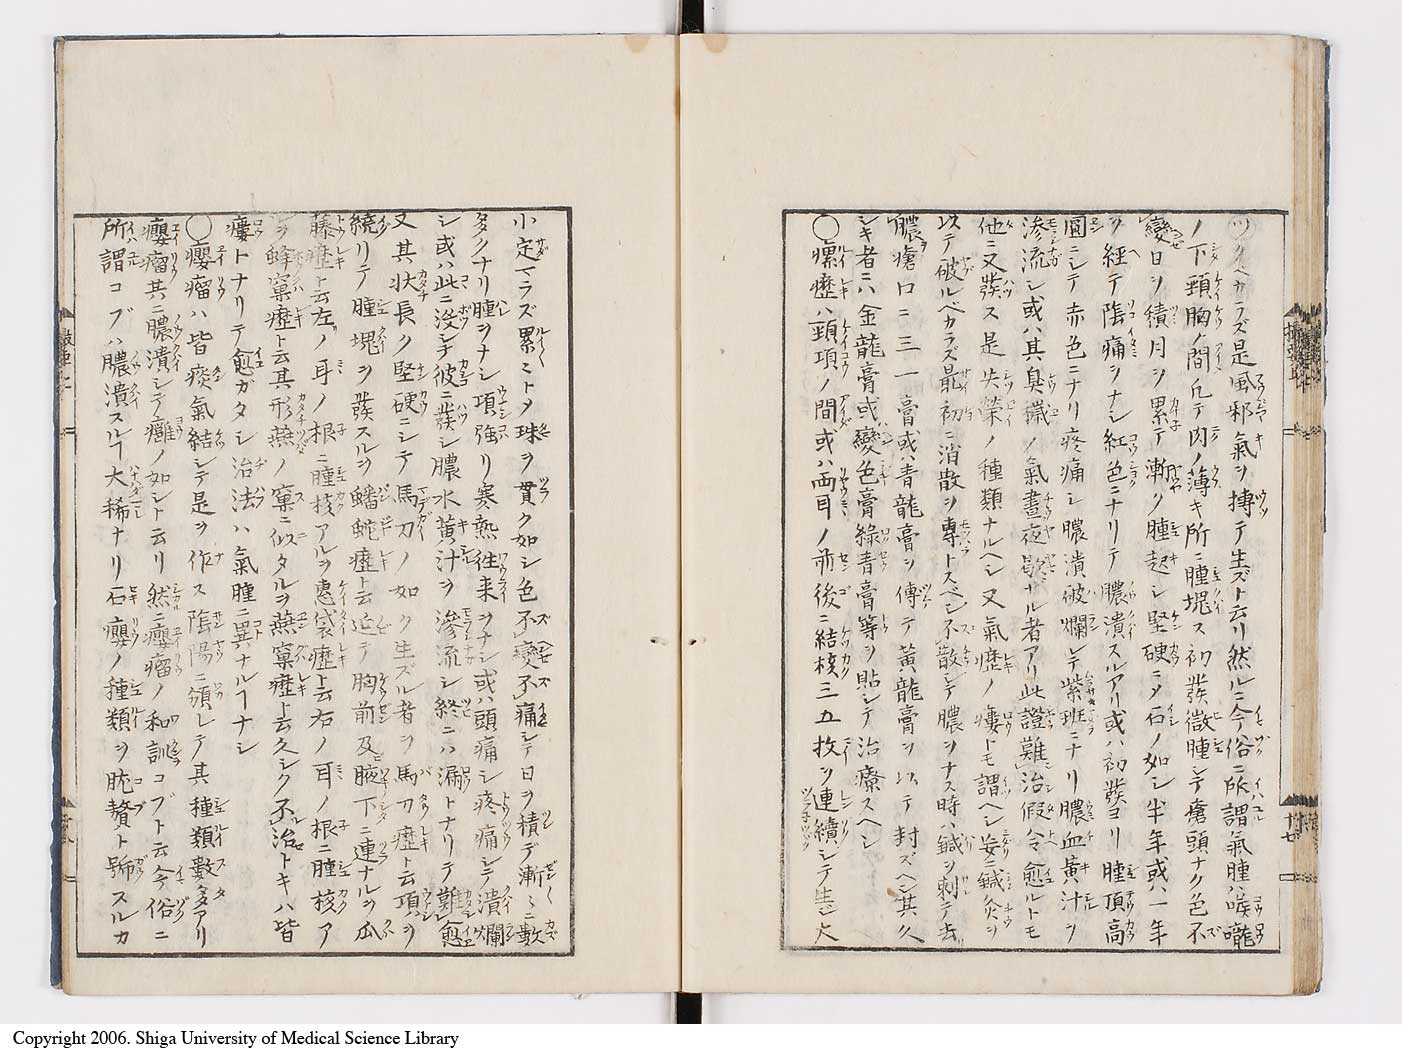 ツクベカラズ是風邪氣ヲ摶テ生ズト云リ然ルニ今俗ニ所謂氣腫ハ喉嚨
ノ下頸胸ノ間凡テ肉ノ薄キ所ニ腫塊ス初發微腫シテ瘡頭ナク色不
變日ヲ積月ヲ累テ漸ク腫起シ堅硬ニメ石ノ如シ半年或ハ一年
ヲ經テ陰痛ヲナシ紅色ニナリテ膿潰スルアリ或ハ初發ヨリ腫頂高
圓ニシテ赤色ニナリ疼痛シ膿潰破爛シテ紫斑ニナリ膿血黄汁ヲ
滲流シ或ハ其臭穢ノ氣晝夜歇ナル者アリ此證難治假令愈ルトモ
他ニ又發ス是失榮ノ種類ナルヘシ又氣癧ノ瘻トモ謂ヘシ妄ニ鍼灸ヲ
以テ破ルベカラズ最初ニ消散ヲ專トスベシ不散シテ膿ヲナス時ハ鍼ヲ刺テ去
膿瘡口ニ三一膏或ハ青龍膏ヲ傅テ黄龍膏ヲ以テ封ズヘシ其久
シキ者ニハ金龍膏或ハ變色膏綠青膏等ヲ貼シテ治療スヘシ
〇瘰癧ハ頸項ノ間或ハ両耳ノ前後ニ結核三五枚ヲ連續シテ生ジ大
小定マラズ累々トメ珠ヲ貫ク如シ色不變不痛シテ日ヲ積デ漸々ニ數
タクナリ腫ヲナシ項強リ寒熱往来ヲナシ或ハ頭痛シ疼痛シテ潰爛
シ或ハ此ニ没シテ彼ニ發シ膿水黄汁ヲ滲流シ終ニハ漏トナリテ難愈
又其状長ク堅硬ニシテ馬刀ノ如ク生ズル者ヲ馬刀癧ト云項ヲ
繞リテ腫塊ヲ發スルヲ蟠蛇癧ト云延テ胸前及腋下ニ連ナルヲ瓜
藤癧ト云左ノ耳ノ根ニ腫核アルヲ惠袋癧ト云右ノ耳ノ根ニ腫核ア
ルヲ蜂窠癧ト云其形燕ノ窠ニ似タルヲ燕窠癧ト云久シク不治トキハ皆
瘻トナリテ愈ガタシ治法ハ氣腫ニ異ナルコトナシ
〇癭瘤ハ皆痰氣結シテ是ヲ作ス陰陽ニ領レテ其種類數多アリ
癭瘤其ニ膿潰シテ癰ノ如シト云リ然ニ癭瘤ノ和訓コブト云今俗ニ
所謂コブハ膿潰スルコト大稀ナリ石癭ノ種類ヲ肬贅ト號スルカ
十七
Copyright 2006. Shiga University of Medical Science Library